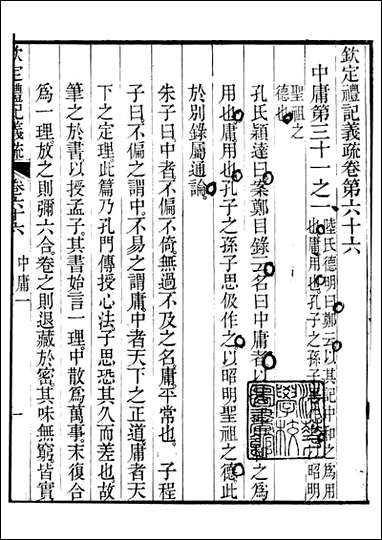 欽定禮記義疏卷第六十六
中庸第三十一之一
陸氏德明曰鄭云以其記中和之為用
也庸用也孔子之孫子思作之以昭明
聖祖之
德也
孔氏穎達曰案鄭目錄云名曰中庸者以其記中和之為
用也庸用也孔子之孫子思伋作之以昭明聖祖之德此
於別錄屬通論
朱子曰中者不偏不倚無過不及之名庸平常也 子程
子曰不偏之謂中不易之謂庸中者天下之正道庸者天
下之定理此篇乃孔門傳授心法子思恐其久而差也故
筆之於書以授孟子其書始言一理中散為萬事末復合
為一理放之則彌六合卷之則退藏於密其味無窮皆實
欽定禮記義疏
卷六十六
中庸一
一